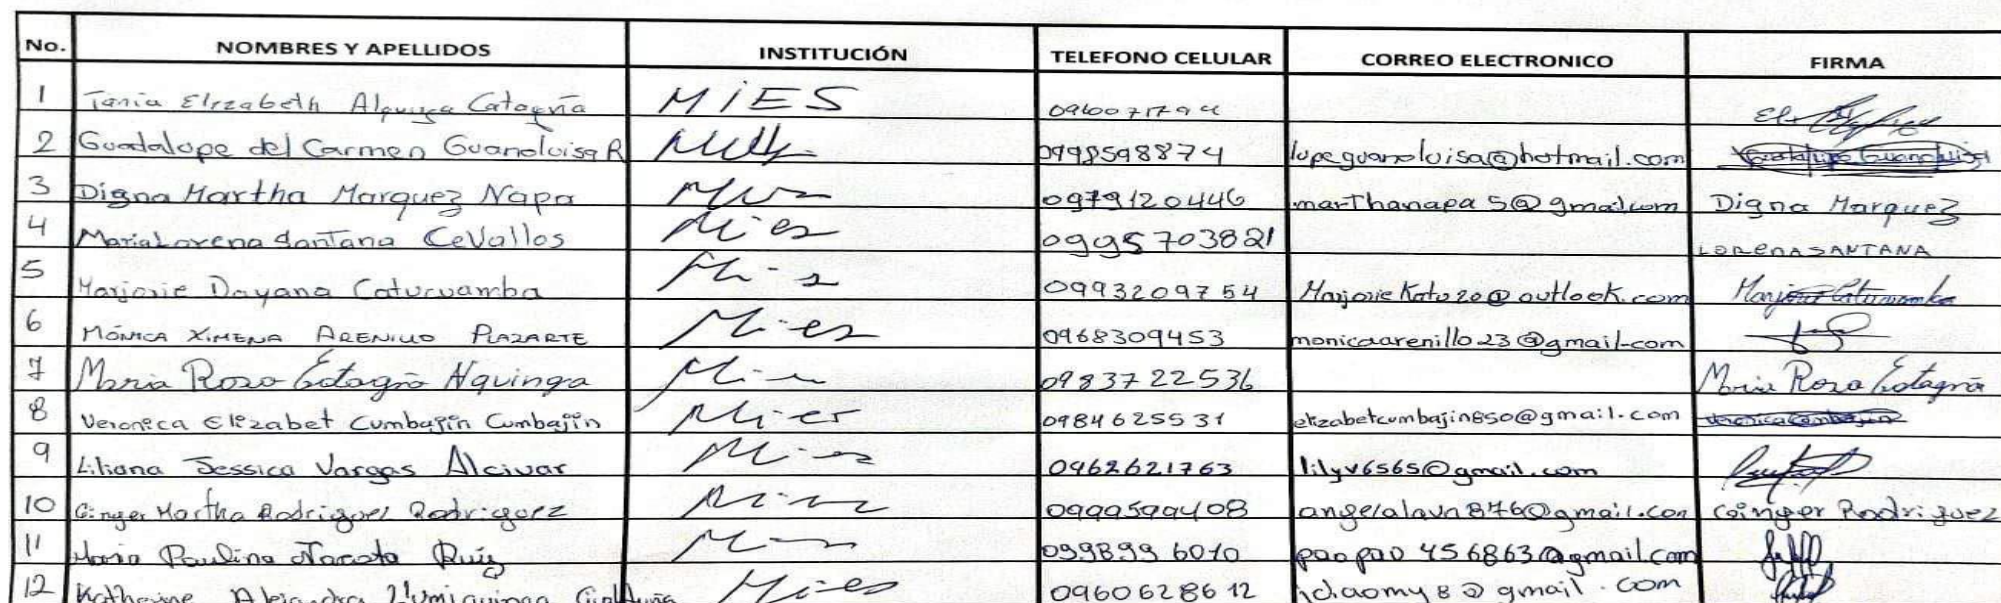 No. NOMBRES Y APELLIDOS INSTITUCIÓN TELEFONO CELULAR CORREO ELECTRONICO FIRMA
1 Tania Elizabeth Catagña MIES
2 Guadalupe del Carmen Guanoluisa R 0998598874 lupeguanoluisa@hotmail.com Guadalupe Guanoluisa
3 Digna Martha Marquez Napa 0979120446 marthanapa5@gmail.com Digna Marquez
4 Maria Lorena Santana Cevallos Mies 0995703821 LORENA SANTANA
5 Marjorie Dayana Catucuamba 0993209754 Marjoriekatu20@outlook.com Marjorie Catucuamba
6 MÓNICA XIMENA ARENILLO PLAZARTE Mies 0968309453 monicaarenillo23@gmail.com
7 Maria Rosa Catagña 0983722536 Maria Rosa Catagña
8 Veronica Elizabet Cumbajin Cumbajin Mies 0984625531 elizabetcumbajin850@gmail.com
9 Liliana Jessica Vargas Alcivar 0962621763 lilyv6565@gmail.com
10 Ginger Martha Rodriguez Rodriguez 0999599408 Ginger Rodriguez
11 Maria Paulina Ruiz 0998996010 paopao456863@gmail.com
12 Katherine Alejandra Mies 0960628612